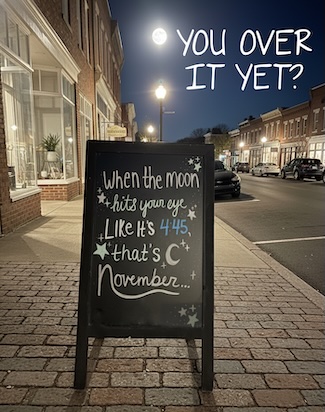 YOU OVER
IT YET?
When the moon
hits your eye
LIKE It's 4:45,
that's
November...